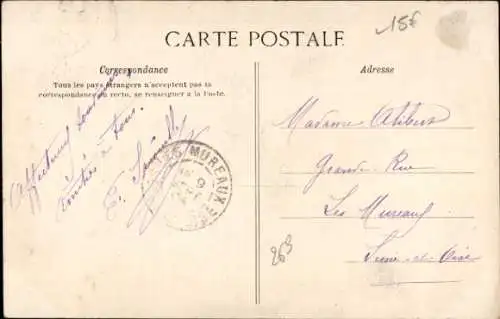 15€
CARTE POSTALE
Correspondance
Adresse
Tous les pays étrangers n'acceptent pas la
correspondance au recto, se renseigner à la Poste.
Affectueux
à tous.
E.
LES MUREAUX
Madame Alibert
Grande Rue
Les Mureaux
Seine-et-Oise
263